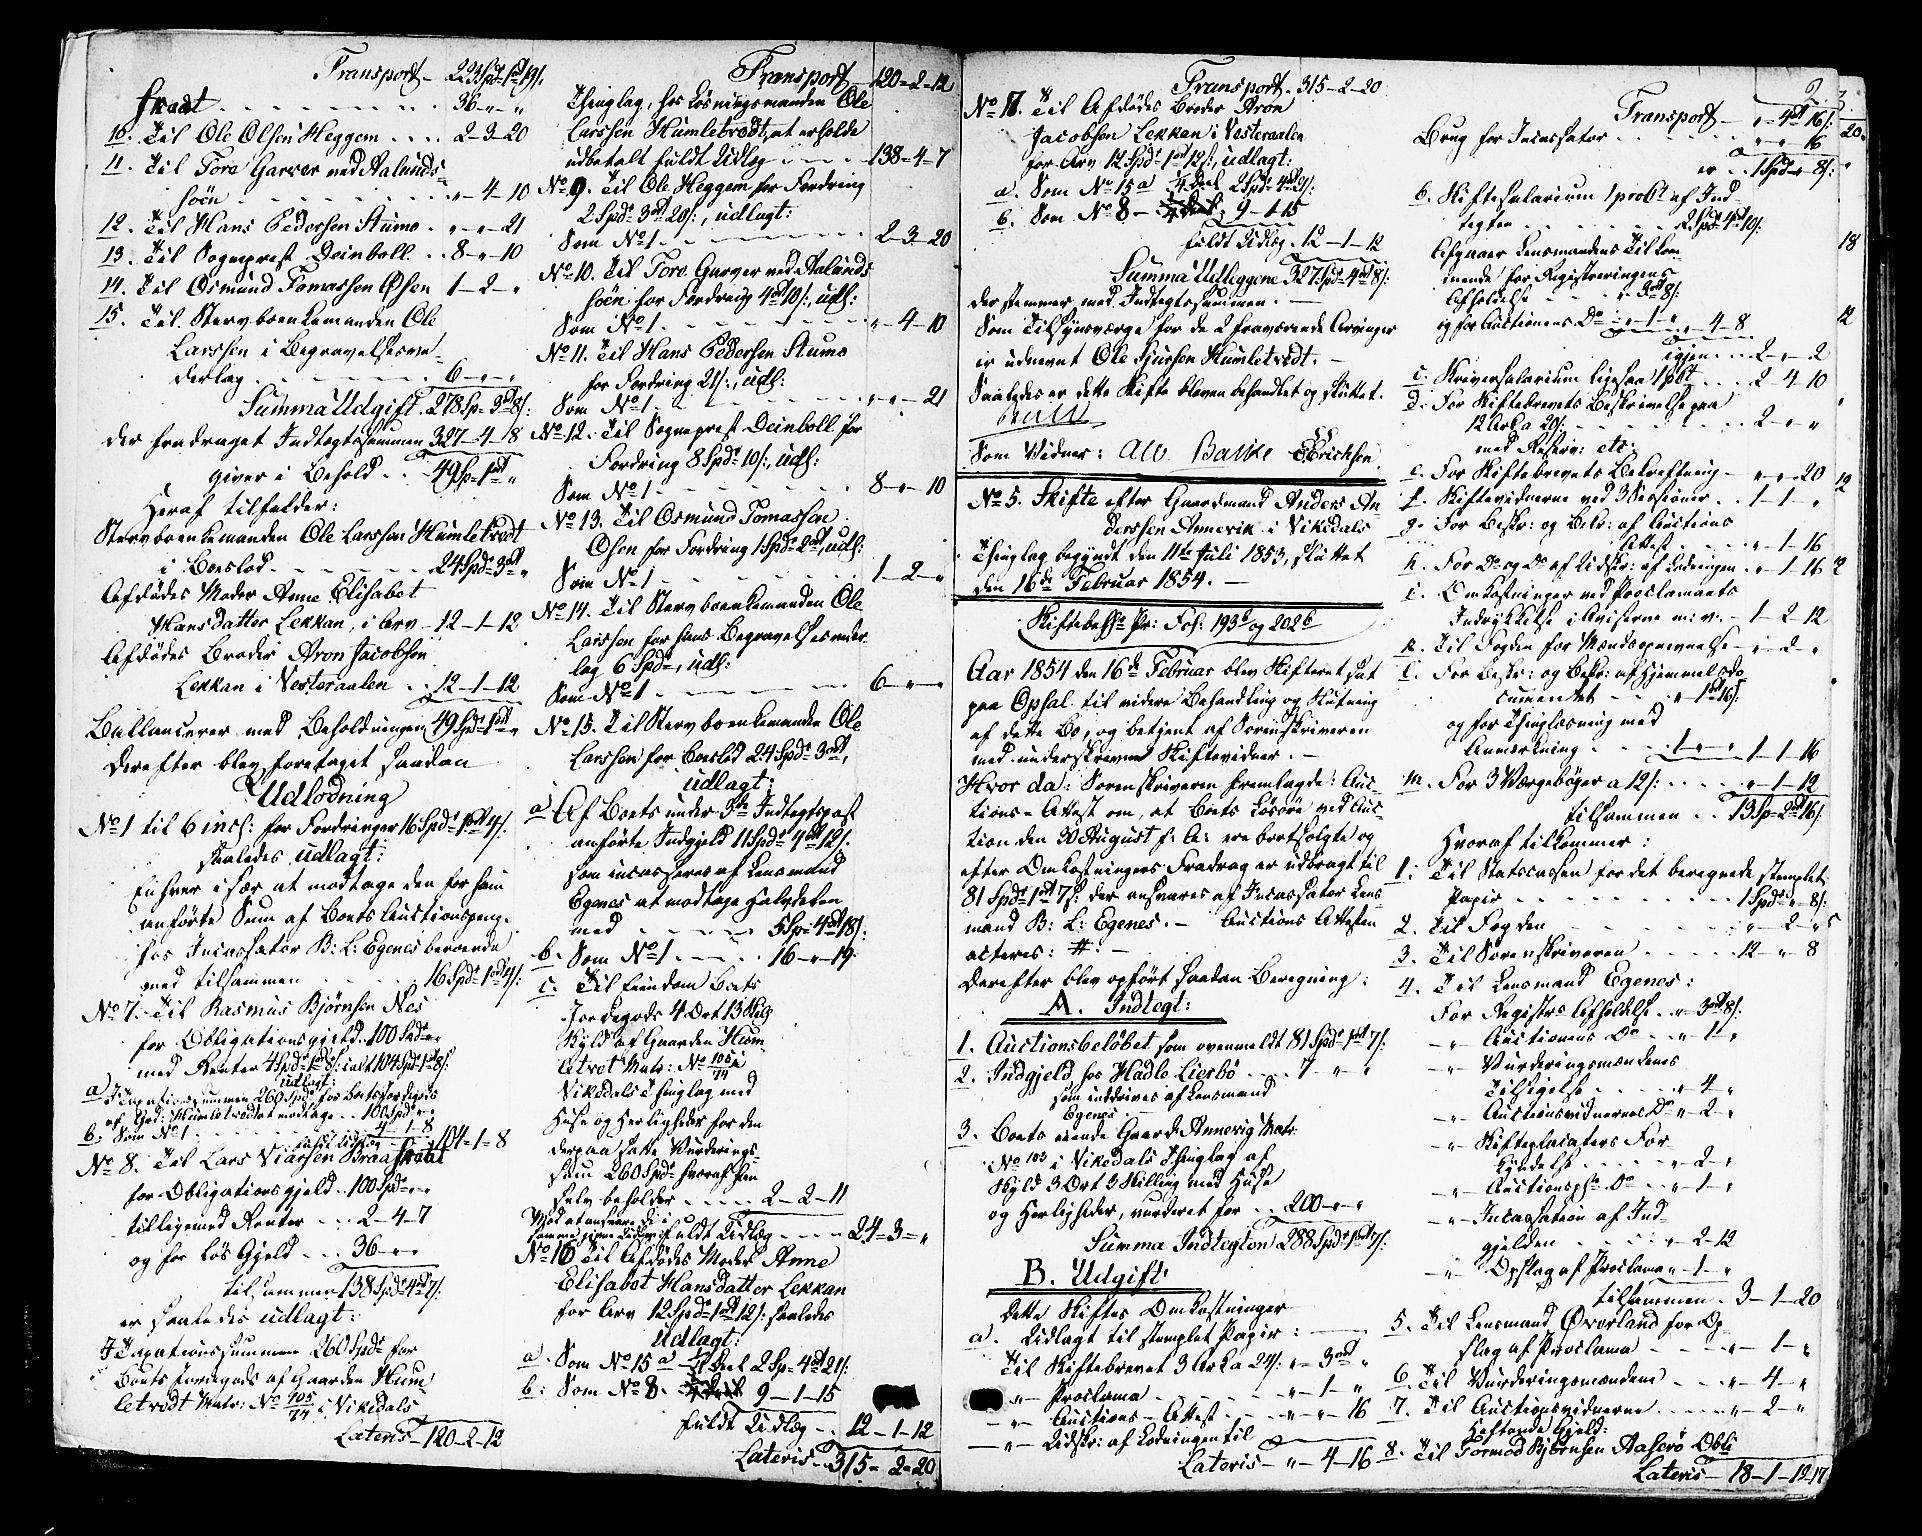 Transport – 223 Spd 1 ort 19 s.
stradt . . . . . . . . 36 – „ – „
10. Til Ole Olsen Heggem . . . . 2–3–20
11. Til Tore Garver ved Aalunds-
søen . . . . . . . „–4–10
12. Til Hans Pedersen Stumo . „–„–21
13. Til Sogneprest Deinboll . . 8–„–10
14. Til Osmund Tomassen Øsen 1–2–„
15. Til Stervboenkemanden Ole
Larssen i Begravelsesve-
derlag . . . . . . . . 6–„–„
Summa Udgift . 278 Sp– 3 ort 8 s:
der fradraget Indtegtssummen 327–4–8
giver i Behold . . 49 Sp– 1 ort „
Heraf tilfalder:
Stervboenkemanden Ole Larssen Humletvedt
i Boeslod . . . . . . . 24 Spd– 3 ort „
Afdødes Moder Anne Elisabet
Hansdatter Lekkan, i Arv – 12–1–12
Afdødes Broder Aron Jacobsen
Lekkan i Vesteraalen . . 12–1–12
Ballancerer med Beholdningen 49 Spd– 1 ort „
Derefter blev foretaget saadan
Udlodning
No 1 til 6 incl: for Fordringer 16 Spd– 1 ort 4 s.
saaledes udlagt:
Enhver især at modtage den for ham
anførte Sum af Boets Auctionspenge
hos Incassator B: L: Egenes beroende
med tilsammen . . . . . 16 Spd– 1 ort 4 s:
No 7. Til Rasmus Bjørnsen Nes
for Obligationsgjeld . 100 Spd– „
med Renter 4 Spd– 1 ort 8 s: ialt 104 Spd 1 ort 8 s:
udlagt:
a I Taxationssummen 260 Spd– for Boets Jordegods
af Grd: Humletvedt at modtage . . 100 Spd– „
b. Som No 1 . . . . . . . 4–1–8
fuldt Udlæg . . . 104–1–8
No 8. Til Lars Viarsen Braastadt
for Obligationsgjeld . . 100 Spd– „
tilligemed Renter . . . 2–4–7
og for løs Gjeld . . . 36–„–„
tilsammen 138 Spd– 4 ort 7 s:
er saaledes udlagt:
I Taxationssummen 260 Spd– for
Boets Jordegods af Gaarden Hum-
letvedt Matr: No 105/74 i Vikedals
Lateris – 120–2–12
Transport – 120–2–12
Thinglag, hos Løsningsmanden Ole
Larssen Humletvedt, at erholde
udbetalt fuldt Udlæg . . . . 138–4–7
No 9. Til Ole Heggem for Fordring
2 Spd– 3 ort 20 s:, udlagt:
Som No 1 . . . . . . . . 2–3–20
No 10. Til Tore Garver ved Aalunds
søen for Fordring 4 ort 10 s:, udl:
Som No 1 . . . . . . . „–4–10
No 11. Til Hans Pedersen Stumo
for Fordring 21 s:, udl:
Som No 1 . . . . . . . „–„–21
No 12. Til Sogneprest Deinboll for
Fordring 8 Spd– 10 s:, udl:
Som No 1 . . . . . . . 8–„–10
No 13. Til Osmund Tomassen
Øsen for Fordring 1 Spd– 2 ort, udl:
Som No 1 . . . . . . . 1–2–„
No 14. Til Stervboenkemanden Ole
Larssen for hans Begravelsesveder-
lag 6 Spd–, udl:
Som No 1 . . . . . . . 6–„–„
No 15. Til Stervboenkemanden Ole
Larssen for Boeslod 24 Spd– 3 ort,
udlagt:
a Af Boets under 3die Indtegtspost
anførte Indgjeld 11 Spd– 4 ort 12 s:
som incasseres af Lensmand
Egenes at modtage Halvdelen
med . . . . . 5 Sp– 4 ort 18 s:
b. Som No 1 . . . . 16–„–19
c. Til Eiendom Boets
Jordegods 4 Ort 13 Skil
Skyld af Gaarden Hum-
letvet Matr: No 105/74 i
Vikedals Thinglag med
Huse og Herligheder for den
derpaa satte Vurderings-
sum 260 Spd– hvoraf han
selv beholder . . . . . 2–2–11
fuldt Udlæg . . . . 24–3–„
No 16 Til Afdødes Moder Anne
Elisabet Hansdatter Lekkan
for Arv 12 Spd– 1 ort 12 s: saaledes
udlagt:
a. Som No 15 a ¼ Deel 2 Sp– 4 ort 21 s:
b: Som No 8. 9–1–15
fuldt Udlæg . . 12–1–12
Lateris . . 315–2–20
Transport . 315–2–20
No 17. Til Afdødes Broder Aron
Jacobsen Lekkan i Vesteraalen
for Arv 12 Spd– 1 ort 12 s:, udlagt:
a. Som No 15 a ¼ Deel 2 Spd– 4 ort 21 s:
b. Som No 8 – 9–1–15
fuldt Udlæg . 12–1–12
Summa Udleggene 327 Spd– 4 ort 8 s:
der stemmer med Indtegtssummen. –
Som Tilsynsverge for de 2 fraværende Arvinger
er udnevnt Ole Sjursen Humletvedt. –
Saaledes er dette Skifte bleven behandlet og sluttet.
Som Vidner: Alb Balke E Erichsen
No 5. Skifte efter Gaardmand Anders An-
derssen Annevik i Vikedals
Thinglag begyndt den 11te Juli 1853, sluttet
den 16de Februar 1854. –
Skiftebehs Pr: Fol: 193 b og 202 b
Aar 1854 den 16de Februar blev Skifteret sat
paa Opsal til videre Behandling og Slutning
af dette Bo, og betjent af Sorenskriveren
med underskrevne Skiftevidner. –
Hvor da: Sorenskriveren fremlagde: Auc-
tions-Attest om, at Boets Løsøre ved Auc-
tion den 30 August f: A: ere bortsolgte og
efter Omkostningers Fradrag er udbragt til
81 Spd– 1 ort 7 s: der ansvares af Incassator Lens-
mand B: L: Egenes. – Auctions Attesten
acteres: # : –
Derefter blev opført saadan Beregning:
A. Indtegt:
1. Auctionsbeløbet som ovenmeldt 81 Spd– 1 ort 7 s:
2. Indgjeld hos Hadle Liesbø . . . . 7 „ „
som inddrives af Lensmand
Egenes. –
3. Boets eiende Gaard Annevig Matr:
No 103 i Vikedals Thinglag af
Skyld 3 Ort 3 Skilling med Huse
og Herligheder, vurderet for . . 200–„–„
Summa Indtegten 288 Spd– 1 ort 7 s:
B. Udgift
Dette Skiftes Omkostninger
a. Udlagt til stemplet Papir:
Til Skiftebrevet 3 Ark a 24 s: „– 3 ort „
„ Proclama . . . . . „–1–„
–„– Auctions-Attest . . . . „–„–16
–„– Udskr: af Lodningen til
Lateris – „–4–16
2.
Transport – „– 4 ort 16 s:
Brug for Incassator . . . . „ „ 16
er . . 1 Spd– „ 8 s:
b. Skiftesalarium 1 proCt af Ind-
tegten . . . . . . 2 Spd– 4 ort 10 s:
Afgaaer Lensmandens Tilkom-
mende for Registreringens
Afholdelse . . . „ 3 ort 8 s:
og for Auctionens Do . „–1–„ „–4–8
igjen . . . 2–„–2
c. Skriversalarium ligesaa 1 pCt . . . 2–4–10
d. For Skiftebrevets Beskrivelse paa
12 Ark a 20 s: . . . . . . 2–„–„
med Reserv: etc:
e. For Skiftebrevets Bekreftning – „–„–20
f. Skiftevidnerne ved 3 Sessioner . . 1–1–„
g. For Beskr: og Bek: af Auctions
Attest . . . . . . „–1–16
h. For Do og Do af Udskr: af Lodningen . „–1–16
i. Omkostninger ved Proclamaets
Indrykkelse i Aviserne m: v: – 1–2–12
k. Til Fogden for Mændsopnevnelse – „–2–„
l. For Beskr: og Bekr: af Hjemmelsdo-
cumentet . . . „– 1 ort 16 s:
og for Thinglæsning med
Anmerkning . . . . 1–„–„ 1–1–16
m. For 3 Værgebøger a 12 s: . . . . „–1–12
tilsammen . . 13 Sp– 2 ort 16 s:
Hvoraf tilkommer:
1. Til Statscassen for det beregnede stemplet
Papir . . . . . . . . . 1 Spd– „ 8 s:
2. Til Fogden . . . . . . „–2–„
3. Til Sorenskriveren . . . . . 12–„–8
4. Til Lensmand Egenes:
For Registrs Afholdelse . . „– 3 ort 8 s:
–„– Auctionens Do . . „–1–„
–„– Vurderingsmændenes
Tilsigelse . . . . . „–4–„
–„– Auctionsvidnernes Do „–2–„
–„– Skifteplacaters For-
kyndelse . . . . . . „–2–„
–„– Auctionspls Do . . „–1–„
–„– Incassation af Ind-
gjelden . . . . . „–2–12
–„– Opslag af Proclama „–1–„
tilsammen . 3–1–20
5. Til Lensmand Øverland for Op-
slag af Proclama . . . . „–1–„
6. Til Vurderingsmændene . . . „–4–„
7. Til Auctionsvidnerne . . . . . „–2–„
Heftende Gjeld:
8. Til Tormod Bjørnsen Aaserø Obli
Lateris – 18–1–12